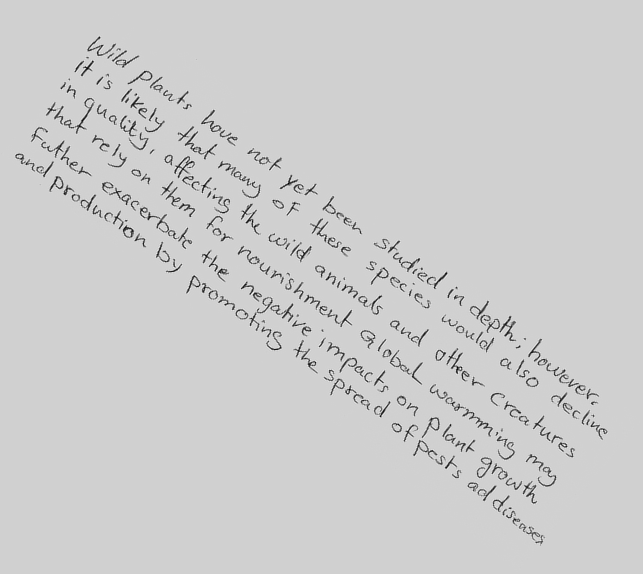 Wild plants have not yet been studied in depth; however,
it is likely that many of these species would also decline
in quality, affecting the wild animals and other creatures
that rely on them for nourishment Global warmming may
Futher exacerbate the negative impacts on plant growth
and production by promoting the spread of pests ad diseases